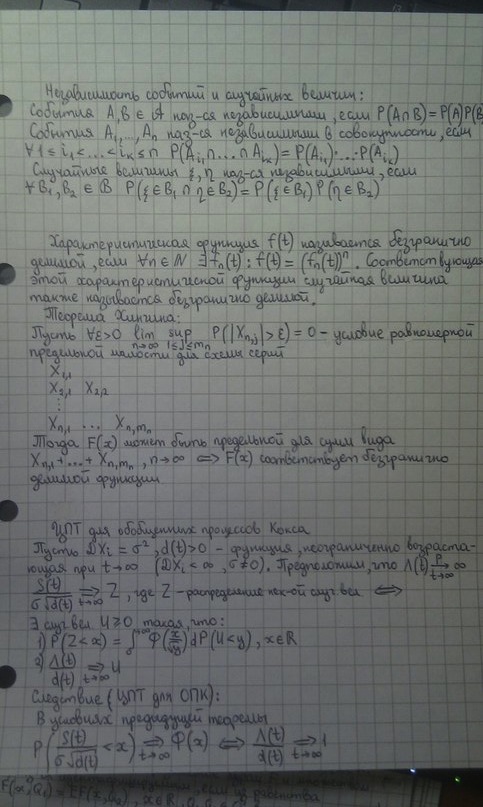 Независимость событий и случайных величин:
События A, B ∈ 𝒜 наз-ся независимыми, если P(A∩B)=P(A)P(B
События A₁,...,Aₙ наз-ся независимыми в совокупности, если
∀ 1 ≤ i₁ <...< iₖ ≤ n P(A_{i₁}∩...∩A_{iₖ}) = P(A_{i₁})·...·P(A_{iₖ})
Случайные величины ξ, η наз-ся независимыми, если
∀ B₁, B₂ ∈ 𝔹 P(ξ∈B₁ ∩ η∈B₂) = P(ξ∈B₁) P(η∈B₂)
Характеристическая функция f(t) называется безгранично
делимой, если ∀n∈N ∃ fₙ(t): f(t) = (fₙ(t))ⁿ. Соответствующая
этой характеристической функции случайная величина
также называется безгранично делимой.
Теорема Хинчина:
Пусть ∀ε>0 lim_{n→∞} sup_{1≤j≤mₙ} P(|X_{n,j}|>ε) = 0 – условие равномерной
предельной малости для схемы серий
X_{1,1}
X_{2,1} X_{2,2}
⋮
X_{n,1} ... X_{n,mₙ}
Тогда F(x) может быть предельной для сумм вида
X_{n,1}+...+X_{n,mₙ}, n→∞ ⇔ F(x) соответствует безгранично
делимой функции
ЦПТ для обобщенных процессов Кокса
Пусть DXᵢ = σ², d(t)>0 – функция, неограниченно возраста-
ющая при t→∞ (DXᵢ<∞, σ≠0). Предположим, что Λ(t) →^P_{t→∞} ∞
S(t)/(σ√d(t)) ⇒_{t→∞} Z, где Z – распределение нек-ой случ вел ⇔
∃ случ вел U≥0 такая, что:
1) P(Z<x) = ∫₀^{+∞} Φ(x/√y) dP(U<y), x∈R
2) Λ(t)/d(t) ⇒_{t→∞} U
Следствие (ЦПТ для ОПК):
В условиях предыдущей теоремы
P(S(t)/(σ√d(t)) < x) ⇒_{t→∞} Φ(x) ⇔ Λ(t)/d(t) ⇒_{t→∞} 1